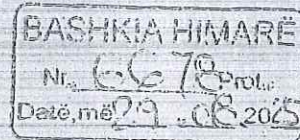 BASHKIA HIMARË
Nr. 6678 Prot.
Datë, më 29.08.2025